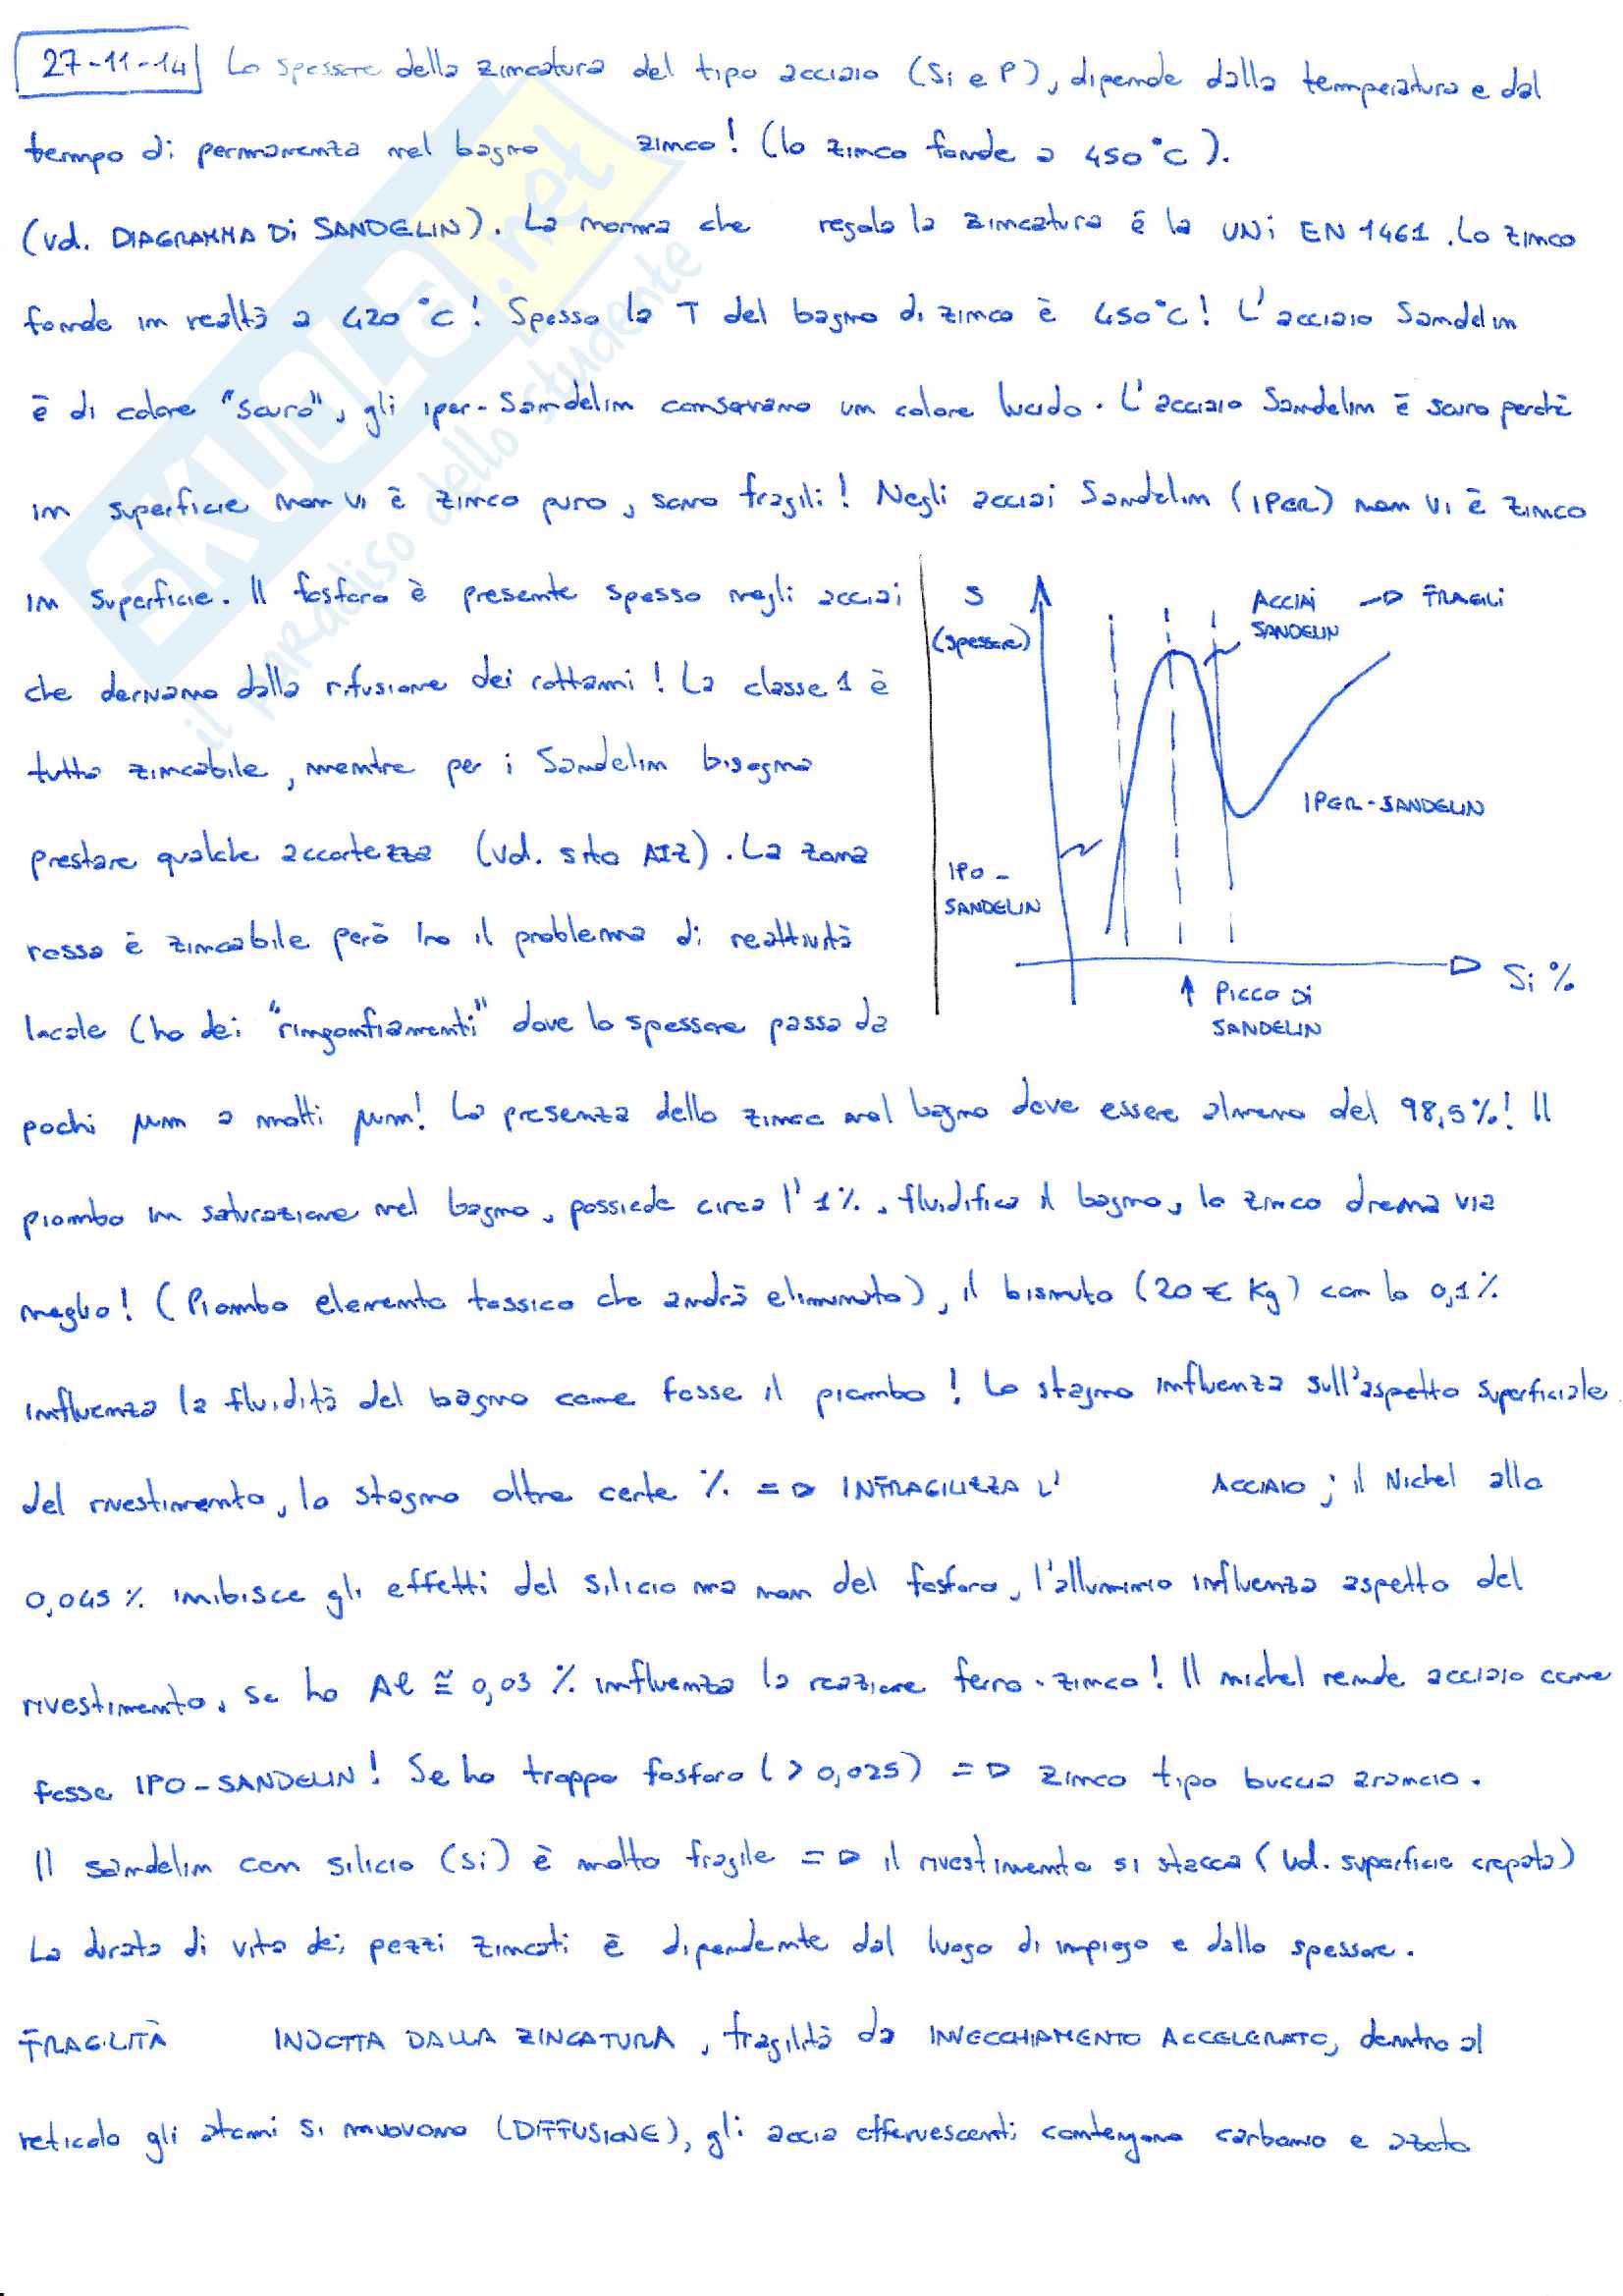 27-11-14 Lo spessore della zincatura del tipo acciaio (Si e P), dipende dalla temperatura e dal
tempo di permanenza nel bagno zinco! (lo zinco fonde a 450°C).
(vd. DIAGRAMMA Di SANDELIN). La norma che regola la zincatura è la UNi EN 1461. Lo zinco
fonde in realtà a 420°C! Spesso la T del bagno di zinco è 450°C! L'acciaio Sandelin
è di colore "scuro", gli iper-Sandelin conservano un colore lucido. L'acciaio Sandelin è scuro perchè
in superficie non vi è zinco puro, sono fragili! Negli acciai Sandelin (IPER) non vi è zinco
in superficie. Il fosforo è presente spesso negli acciai
che derivano dalla rifusione dei rottami! La classe 1 è
tutta zincabile, mentre per i Sandelin bisogna
prestare qualche accortezza (vd. sito AIZ). La zona
rossa è zincabile però ho il problema di reattività
locale (ho dei "rigonfiamenti" dove lo spessore passa da
pochi µm a molti µm! La presenza dello zinco nel bagno deve essere almeno del 98,5%! Il
piombo in saturazione nel bagno, possiede circa l'1%, fluidifica il bagno, lo zinco drena via
meglio! (Piombo elemento tossico che andrà eliminato), il bismuto (20 € Kg) con lo 0,1%
influenza la fluidità del bagno come fosse il piombo! Lo stagno influenza sull'aspetto superficiale
del rivestimento, lo stagno oltre certe % => INFRAGILIZZA L' ACCIAIO; il Nichel allo
0,045% inibisce gli effetti del silicio ma non del fosforo, l'alluminio influenza aspetto del
rivestimento, se ho Al ≅ 0,03% influenza la reazione ferro-zinco! Il nichel rende acciaio come
fosse IPO-SANDELIN! Se ho troppo fosforo (> 0,025) => zinco tipo buccia arancio.
Il sandelin con silicio (Si) è molto fragile => il rivestimento si stacca (vd. superficie crepata)
La durata di vita dei pezzi zincati è dipendente dal luogo di impiego e dallo spessore.
FRAGILITÀ INDOTTA DALLA ZINCATURA, fragilità da INVECCHIAMENTO ACCELERATO, dentro al
reticolo gli atomi si muovono (DIFFUSIONE), gli acciai effervescenti contengono carbonio e azoto
S
(spessore)
ACCIAI -> FRAGILI
SANDELIN
IPER-SANDELIN
IPO-
SANDELIN
Si %
↑ PICCO Di
SANDELIN
SKUOLA.net
il paradiso dello studente